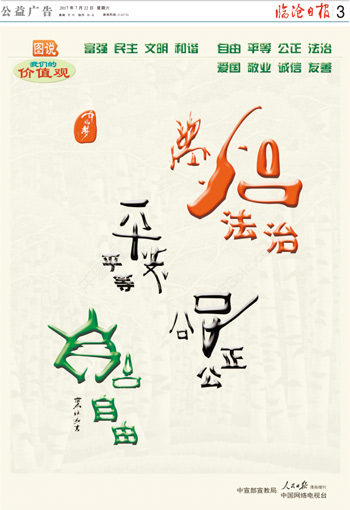 公益广告
2017年7月22日 星期六
临沧日报 3
图说
我们的
价值观
富强 民主 文明 和谐 自由 平等 公正 法治
爱国 敬业 诚信 友善
法治
平等
公正
自由
中宣部宣教局
人民日报
中国网络电视台